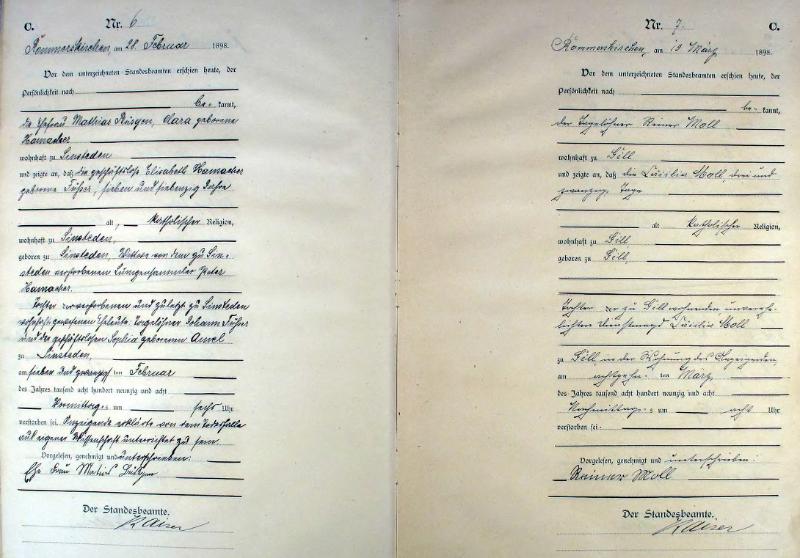 C. Nr. 6
Rommerskirchen, am 28. Februar 1898.
Vor dem unterzeichneten Standesbeamten erschien heute, der
Persönlichkeit nach
be- kannt,
die Ehefrau Mathias Clara geborene
Hamacher
wohnhaft zu Sinsteden
und zeigte an, daß die geschäftslose Elisabeth Hamacher
geborene sieben und siebenzig Jahre
alt, katholischer Religion,
wohnhaft zu Sinsteden,
geboren zu Sinsteden, Wittwe von dem zu Sin-
steden verstorbenen Lumpensammler Peter
Hamacher.
Tochter der verstorbenen und zuletzt zu Sinsteden
wohnhaft gewesenen Eheleute, Tagelöhner Johann
und der geschäftslosen Sophia geborenen
zu Sinsteden,
am sieben und zwanzigsten Februar
des Jahres tausend acht hundert neunzig und acht
Vormittags um sechs Uhr
verstorben sei. Anzeigende erklärte von dem Todesfalle
aus eigener Wissenschaft unterrichtet zu sein.
Vorgelesen, genehmigt und unterschrieben:
Frau
Der Standesbeamte.
Kaiser
Nr. 7 C.
Rommerskirchen, am 19 März 1898.
Vor dem unterzeichneten Standesbeamten erschien heute, der
Persönlichkeit nach
be- kannt,
der Tagelöhner Reiner Moll
wohnhaft zu Gill
und zeigte an, daß die Cäcilia Moll, drei und
zwanzig Tage
alt katholischer Religion,
wohnhaft zu Gill
geboren zu Gill,
Tochter der zu Gill wohnenden unverehe-
lichten Dienstmagd Cäcilia Moll
zu Gill, in der Wohnung des Anzeigenden,
am achtzehn- ten März
des Jahres tausend acht hundert neunzig und acht
Nachmittags um acht Uhr
verstorben sei:
Vorgelesen, genehmigt und unterschrieben:
Reiner Moll
Der Standesbeamte.
Kaiser